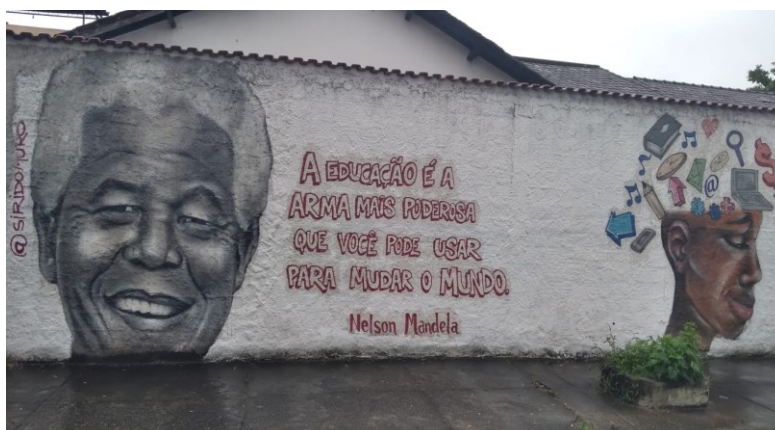 @SIRIDOMURO
A EDUCAÇÃO É A
ARMA MAIS PODEROSA
QUE VOCÊ PODE USAR
PARA MUDAR O MUNDO.
Nelson Mandela
@
$